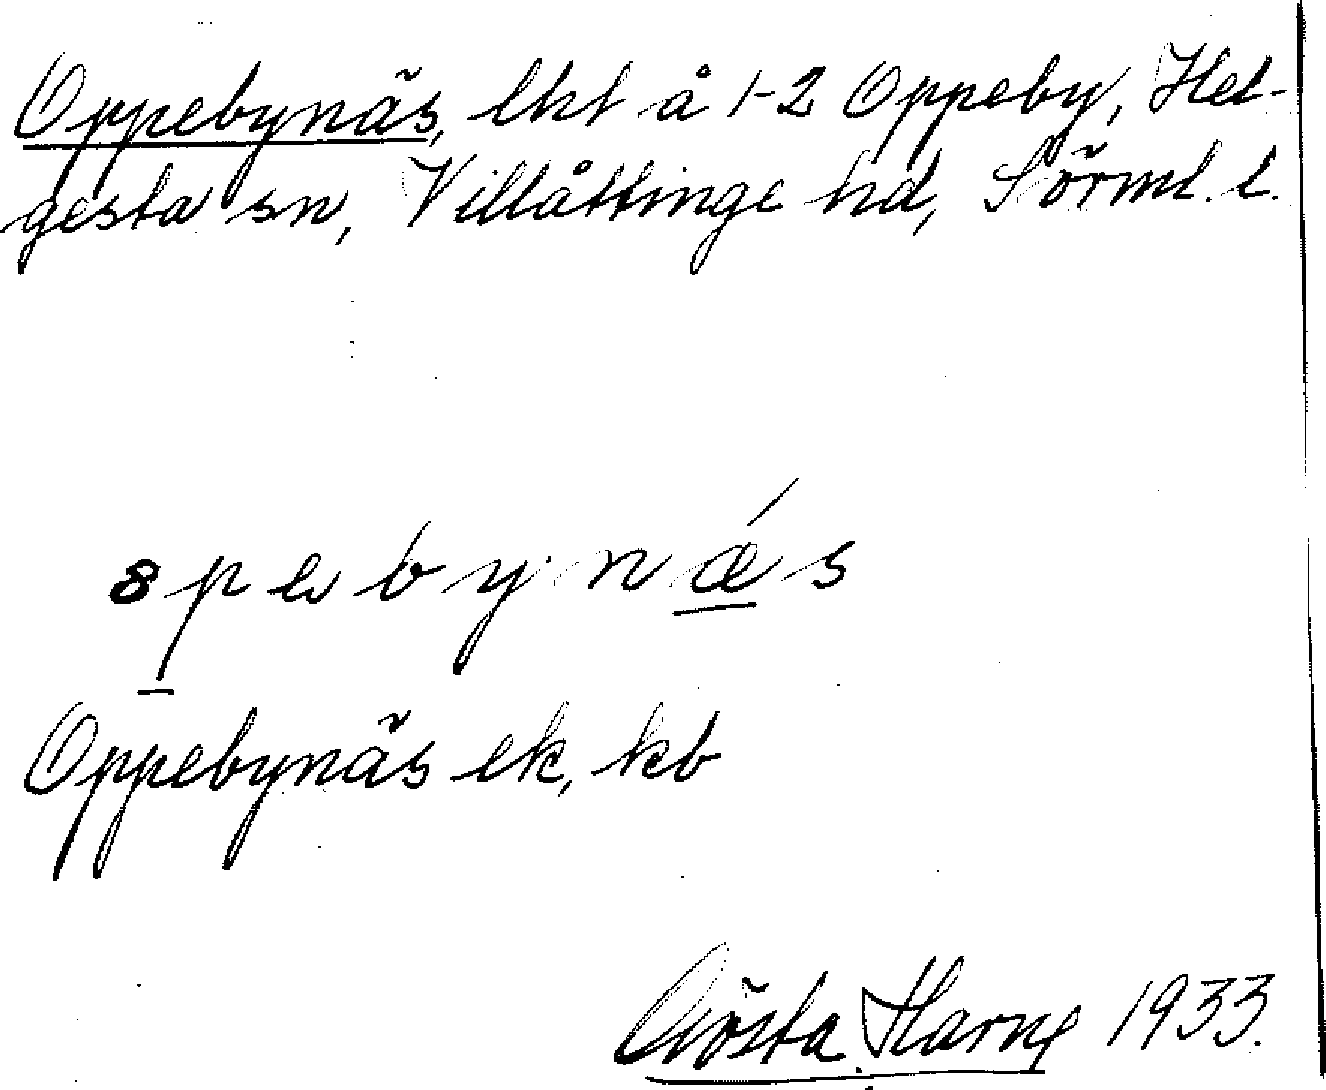 Oppebynäs, lht å 1-2 Oppeby, Hel-
gesta sn, Villåttinge hd, Sörml. l.
Oppebynäs ek, kb
Gösta Harne 1933.